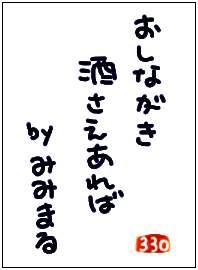 おしながき
酒さえあれば
byみみまる
330